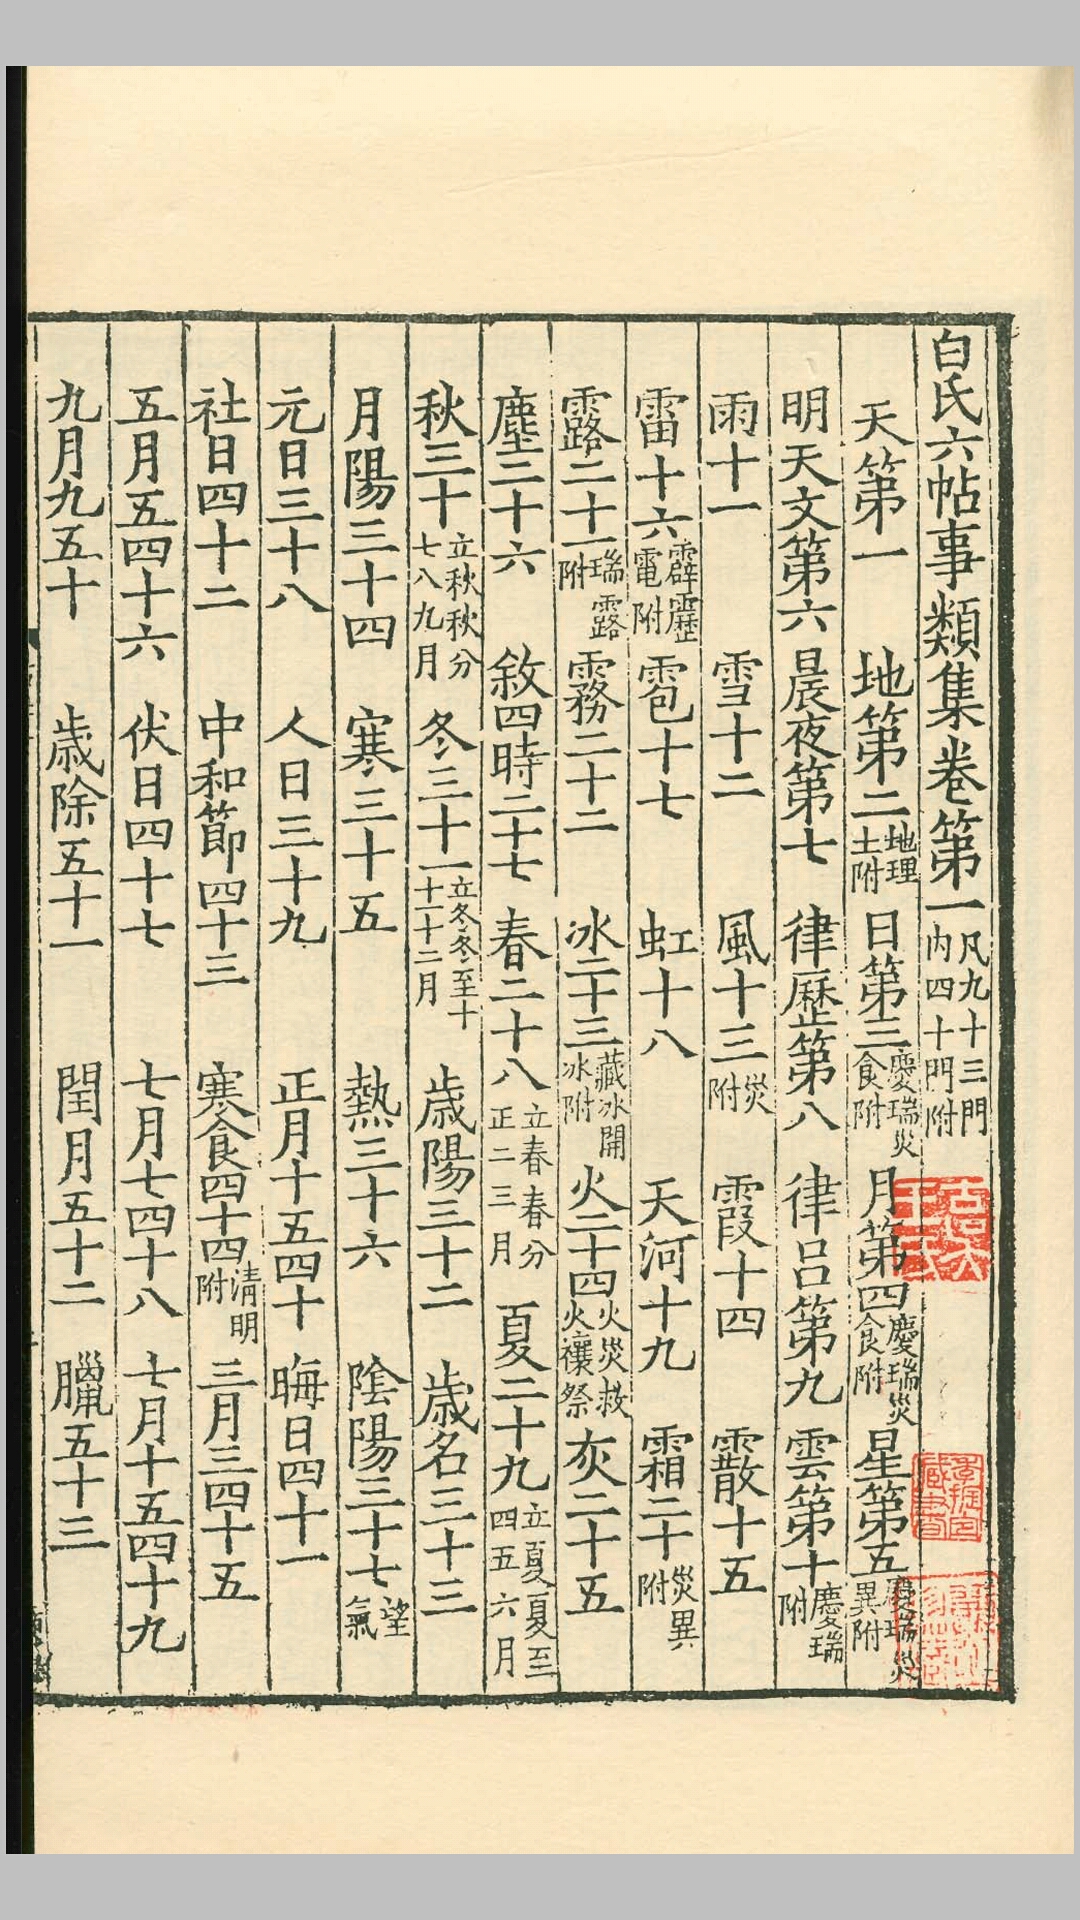 白氏六帖事類集卷第一凡九十三門内四十門附
天第一 地第二地理土附 日第三慶瑞災食附 月第四慶瑞災食附 星第五慶瑞災異附
明天文第六 晨夜第七 律歷第八 律呂第九 雲第十慶瑞附
雨十一 雪十二 風十三災附 霞十四 霰十五
雷十六霹靂電附 雹十七 虹十八 天河十九 霜二十災異附
露二十一瑞露附 霧二十二 冰二十三藏冰開冰附 火二十四火災救火禳祭 灰二十五
塵二十六 敘四時二十七 春二十八立春春分正二三月 夏二十九立夏夏至四五六月
秋三十立秋秋分七八九月 冬三十一立冬冬至十十一十二月 歲陽三十二 歲名三十三
月陽三十四 寒三十五 熱三十六 陰陽三十七望氣
元日三十八 人日三十九 正月十五四十 晦日四十一
社日四十二 中和節四十三 寒食四十四清明附 三月三四十五
五月五四十六 伏日四十七 七月七四十八 七月十五四十九
九月九五十 歲除五十一 閏月五十二 臘五十三